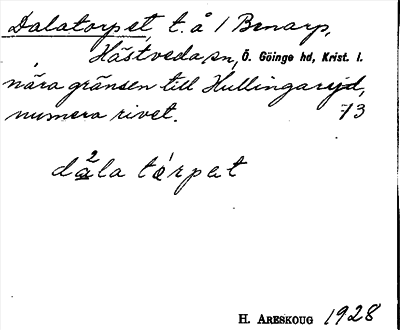 Dalatorpet, t. å 1 Benarp,
Hästveda sn, Ö. Göinge hd, Krist. l.
nära gränsen till Hullingaröjd,
numera rivet. 73
da²la tórpet
H. ARESKOUG 1928